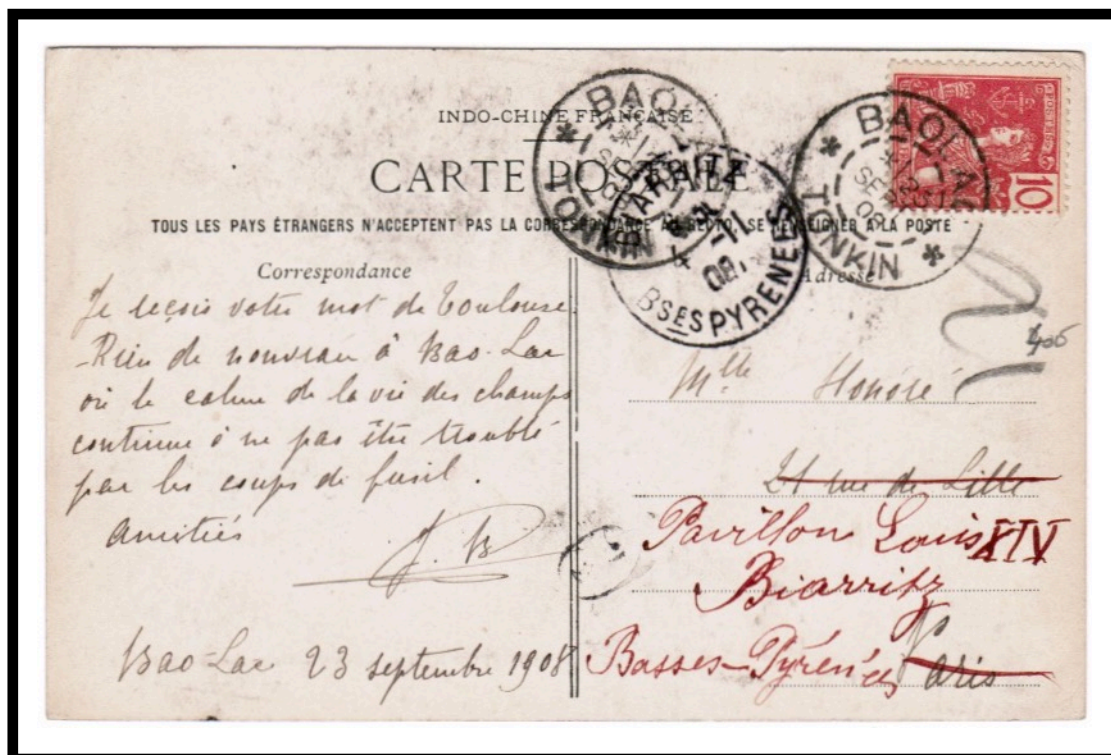 INDO-CHINE FRANÇAISE
CARTE POSTALE
TOUS LES PAYS ÉTRANGERS N'ACCEPTENT PAS LA CORRESPONDANCE AU RECTO, SE RENSEIGNER A LA POSTE
10
BAOLAC
TONKIN
BAOLAC
SEPT
08
TONKIN
BIARRITZ
4
-11
08
BSES PYRENEES
Correspondance
Je reçois votre mot de Toulouse.
-Rien de nouveau à Bao-Lac
où le calme de la vie des champs
continue à ne pas être troublé
par les coups de fusil.
Amitiés
J. B
Bao-Lac 23 septembre 1908
Adresse
Mlle Honoré
21 rue de Lille
Pavillon Louis XIV
Biarritz
Basses-Pyrénées
Paris